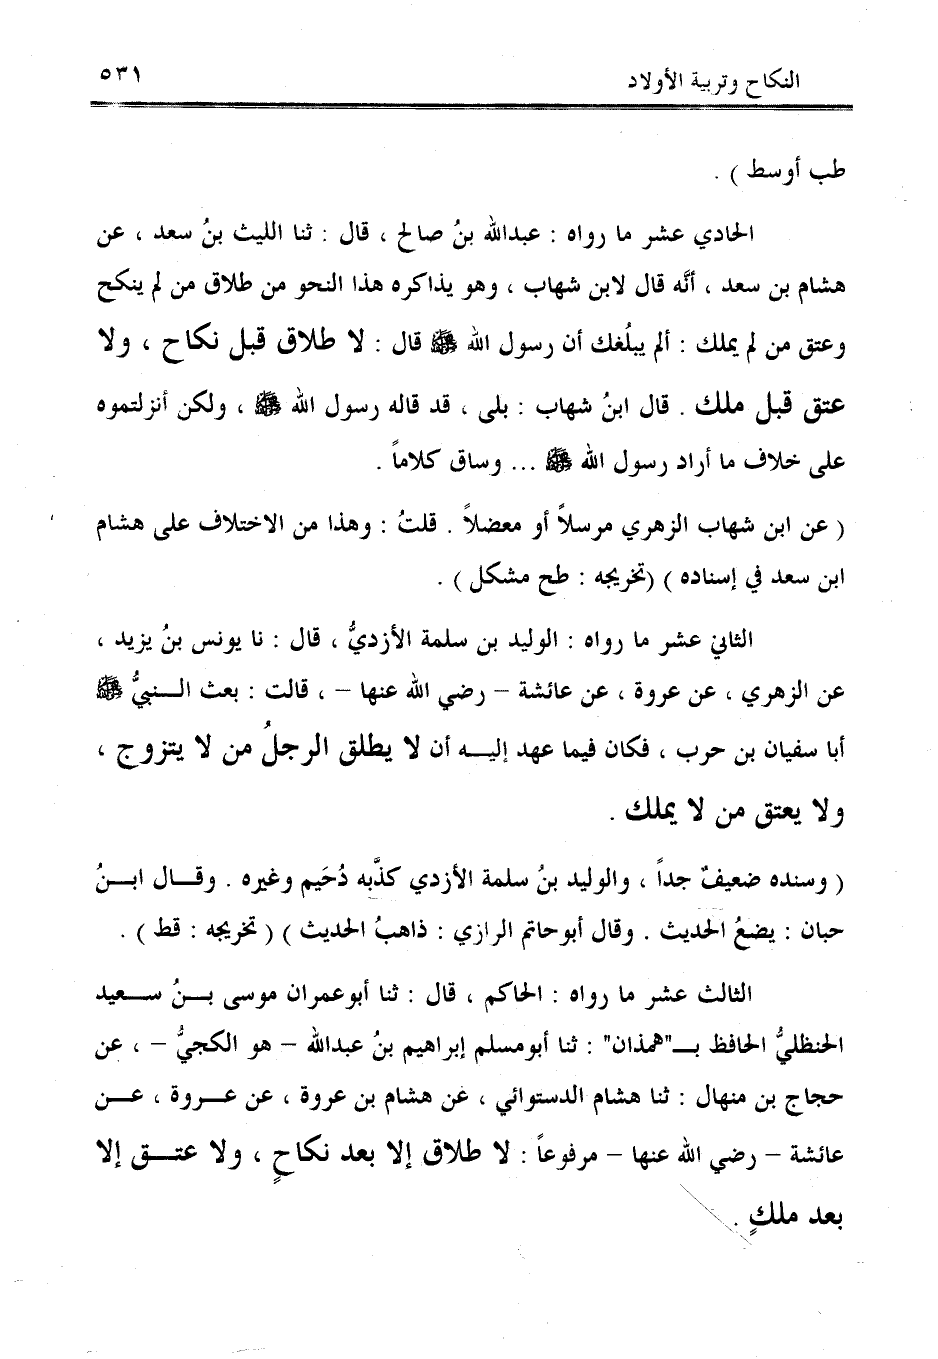 النكاح وتربية الأولاد
٥٣١
طب أوسط ) .
الحادي عشر ما رواه : عبدالله بنُ صالح ، قال : ثنا الليث بنُ سعد ، عن
هشام بن سعد ، أنَّه قال لابن شهاب ، وهو يذاكره هذا النحو من طلاق من لم ينكح
وعتق من لم يملك : ألم يبلُغك أن رسول الله ﷺ قال : لا طلاق قبل نكاح ، ولا
عتق قبل ملك . قال ابنُ شهاب : بلى ، قد قاله رسول الله ﷺ ، ولكن أنزلتموه
على خلاف ما أراد رسول الله ﷺ ... وساق كلاماً .
( عن ابن شهاب الزهري مرسلاً أو معضلاً . قلتُ : وهذا من الاختلاف على هشام
ابن سعد في إسناده ) (تخريجه : طح مشكل ) .
الثاني عشر ما رواه : الوليد بن سلمة الأزديُّ ، قال : نا يونس بنُ يزيد ،
عن الزهري ، عن عروة ، عن عائشة – رضي الله عنها – ، قالت : بعث الـــنبيُّ ﷺ
أبا سفيان بن حرب ، فكان فيما عهد إليـــه أن لا يطلق الرجلُ من لا يتزوج ،
ولا يعتق من لا يملك .
( وسنده ضعيفٌ جداً ، والوليد بنُ سلمة الأزدي كذَّبه دُحَيم وغيره . وقـــال ابـــنُ
حبان : يضعُ الحديث . وقال أبوحاتم الرازي : ذاهبُ الحديث ) ( تخريجه : قط ) .
الثالث عشر ما رواه : الحاكم ، قال : ثنا أبوعمران موسى بـــنُ ســـعيد
الحنظليُّ الحافظ بـــ"همذان" : ثنا أبومسلم إبراهيم بنُ عبدالله – هو الكجيُّ – ، عن
حجاج بن منهال : ثنا هشام الدستوائي ، عن هشام بن عروة ، عن عـــروة ، عـــن
عائشة – رضي الله عنها – مرفوعاً : لا طلاق إلا بعد نكاحٍ ، ولا عتـــق إلا
بعد ملكٍ .